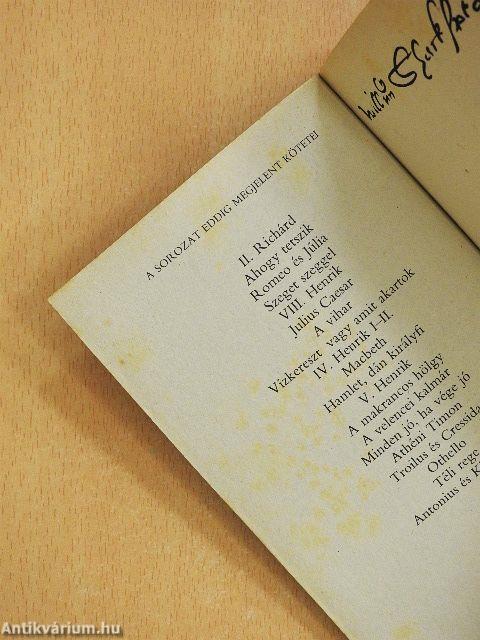 A SOROZAT EDDIG MEGJELENT KÖTETEI
II. Richárd
Ahogy tetszik
Romeo és Júlia
Szeget szeggel
VIII. Henrik
Julius Caesar
A vihar
Vízkereszt vagy amit akartok
IV. Henrik I–II.
Macbeth
Hamlet, dán királyfi
V. Henrik
A makrancos hölgy
A velencei kalmár
Minden jó, ha vége jó
Athéni Timon
Troilus és Cressida
Othello
Téli rege
Antonius és K
Antikvárium.hu